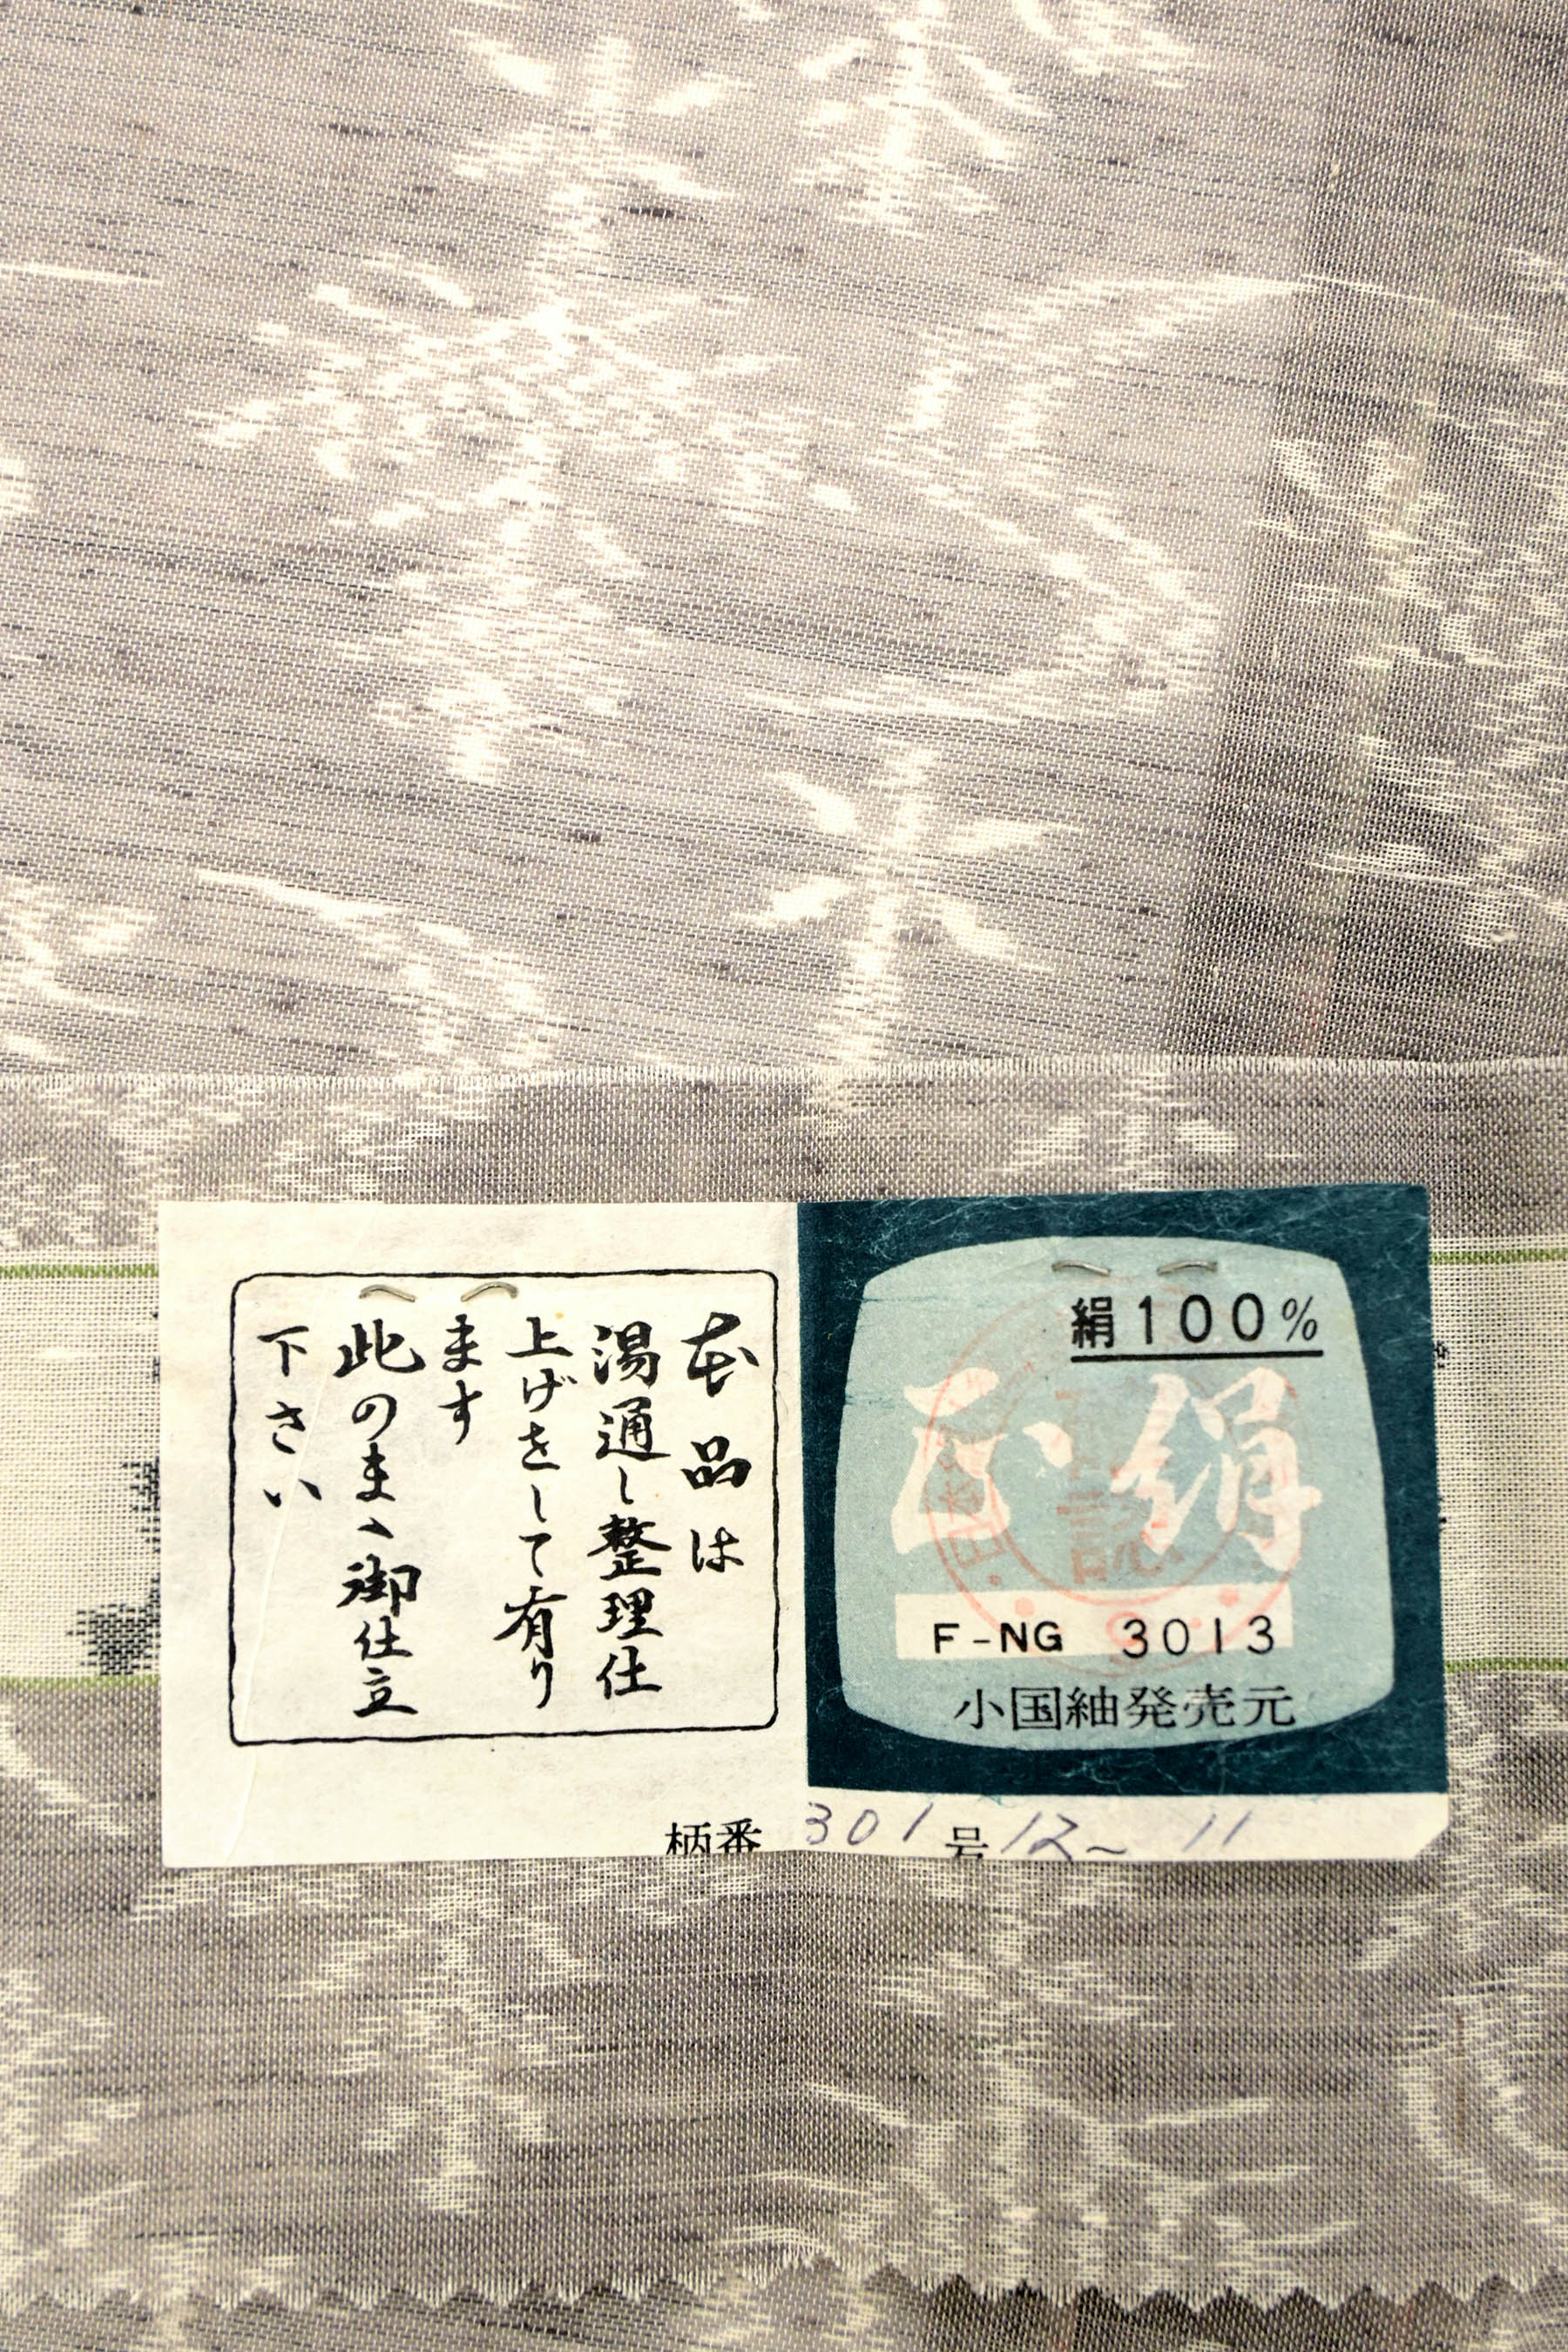 本品は
湯通し整理仕
上げをして有り
ます
此のまゝ御仕立
下さい
絹100%
正絹
F-NG 3013
小国紬発売元
柄番 301 号 12~ 11